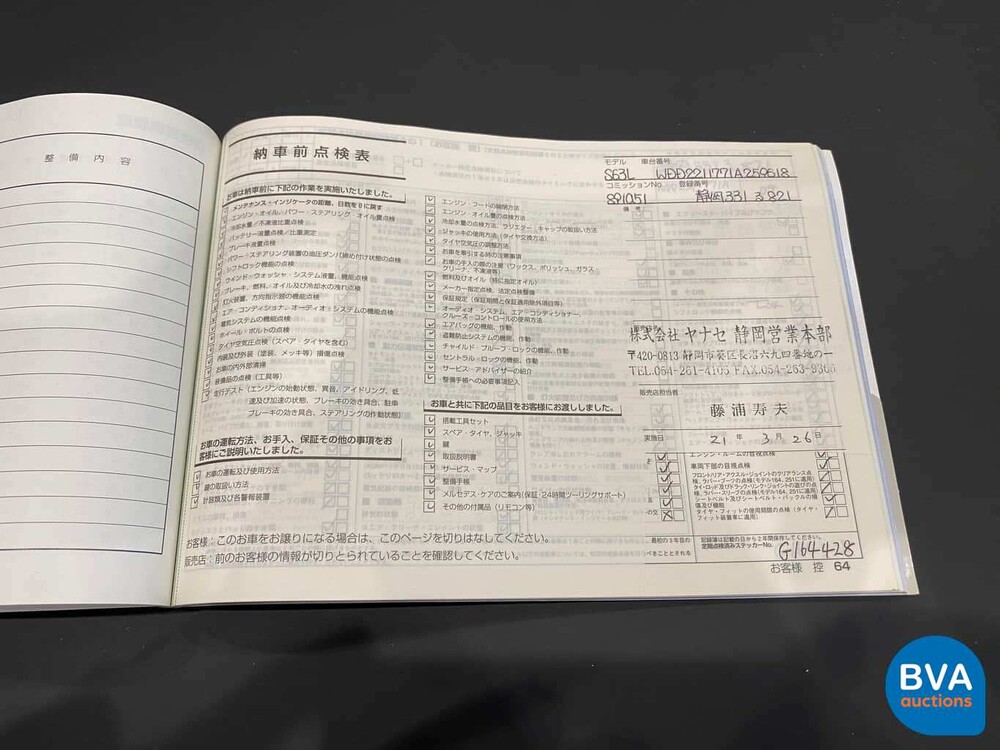 整備内容
納車前点検表
お車は納車前に下記の作業を実施いたしました。
メンテナンス・インジケータの距離、日数を0に戻す
エンジン・オイル、パワー・ステアリング オイル量点検
冷却水量／不凍液比重点検
バッテリー液量点検／比重測定
ブレーキ液量点検
パワー・ステアリング装置の油圧ダンパ締め付け状態の点検
シフトロック機能の点検
ウインド・ウォッシャ・システム液量、機能点検
ブレーキ、燃料、オイル及び冷却水の洩れ点検
灯火装置、方向指示器の機能点検
エア・コンディショナ、オーディオ・システムの機能点検
電気システムの機能点検
ホイール・ボルトの点検
タイヤ空気圧点検（スペア・タイヤを含む）
内装及び外装（塗装、メッキ等）損傷点検
お車の内外部清掃
装備品の点検（工具等）
走行テスト（エンジンの始動状態、異音、アイドリング、低
速及び加速の状態、ブレーキの効き具合、駐車
ブレーキの効き具合、ステアリングの作動状態）
お車の運転方法、お手入、保証その他の事項をお
客様にご説明いたしました。
お車の運転及び使用方法
鍵の取扱い方法
計器類及び各警報装置
エンジン・フードの開閉方法
エンジン・オイル量の点検方法
冷却水量の点検方法、ラジエター・キャップの取扱い方法
ジャッキの使用方法（タイヤ交換方法）
タイヤ空気圧の調整方法
お車を牽引する時の注意事項
お車の手入の際の注意（ワックス、ポリッシュ、ガラス
クリーナ、不凍液等）
燃料及びオイル（特に指定オイル）
メーカー指定点検、法定点検整備
保証規定（保証期間と保証適用除外項目等）
オーディオ・システム、エア・コンディショナー、
クルーズ・コントロールの使用方法
エアバッグの機能、作動
盗難防止システムの機能、作動
チャイルド・プルーフ・ロックの機能、作動
セントラル・ロックの機能、作動
サービス・アドバイザーの紹介
整備手帳への必要事項記入
お車と共に下記の品目をお客様にお渡ししました。
搭載工具セット
スペア・タイヤ、ジャッキ
鍵
取扱説明書
サービス・マップ
整備手帳
メルセデス・ケアのご案内（保証・24時間ツーリングサポート）
その他の付属品（リモコン等）
お客様：このお車をお譲りになる場合は、このページを切りはなしてください。
販売店：前のお客様の情報が切りとられていることを確認してください。
モデル 車台番号
S63L WDD2211771A259618
コミッションNo. 登録番号
891051 静岡331る821
備考
株式会社ヤナセ 静岡営業本部
〒420-0813 静岡市葵区長沼六九四番地の一
TEL.054-261-4105 FAX.054-263-9366
販売店担当者
藤浦寿夫
実施日 21年 3月 26日
エンジン・ルームの目視点検
車両下部の目視点検
フロントロア・アクスル・ジョイントのクリアランス点
検、ラバー・ブーツの点検（モデル164、251に適用）
タイ・ロッド及びドラッグ・リンク・ジョイントの遊びの点
検、ラバー・スリーブの点検（モデル164、251に適用）
シートベルト及びシートベルト・バックルの損
傷及び機能
タイヤ・フィットの使用期限の点検（タイヤ・
フィット装着車に適用）
記録簿は記載の日から2年間保存してください。
定期点検済みステッカーNo. G164428
お客様 控 64
BVA
auctions